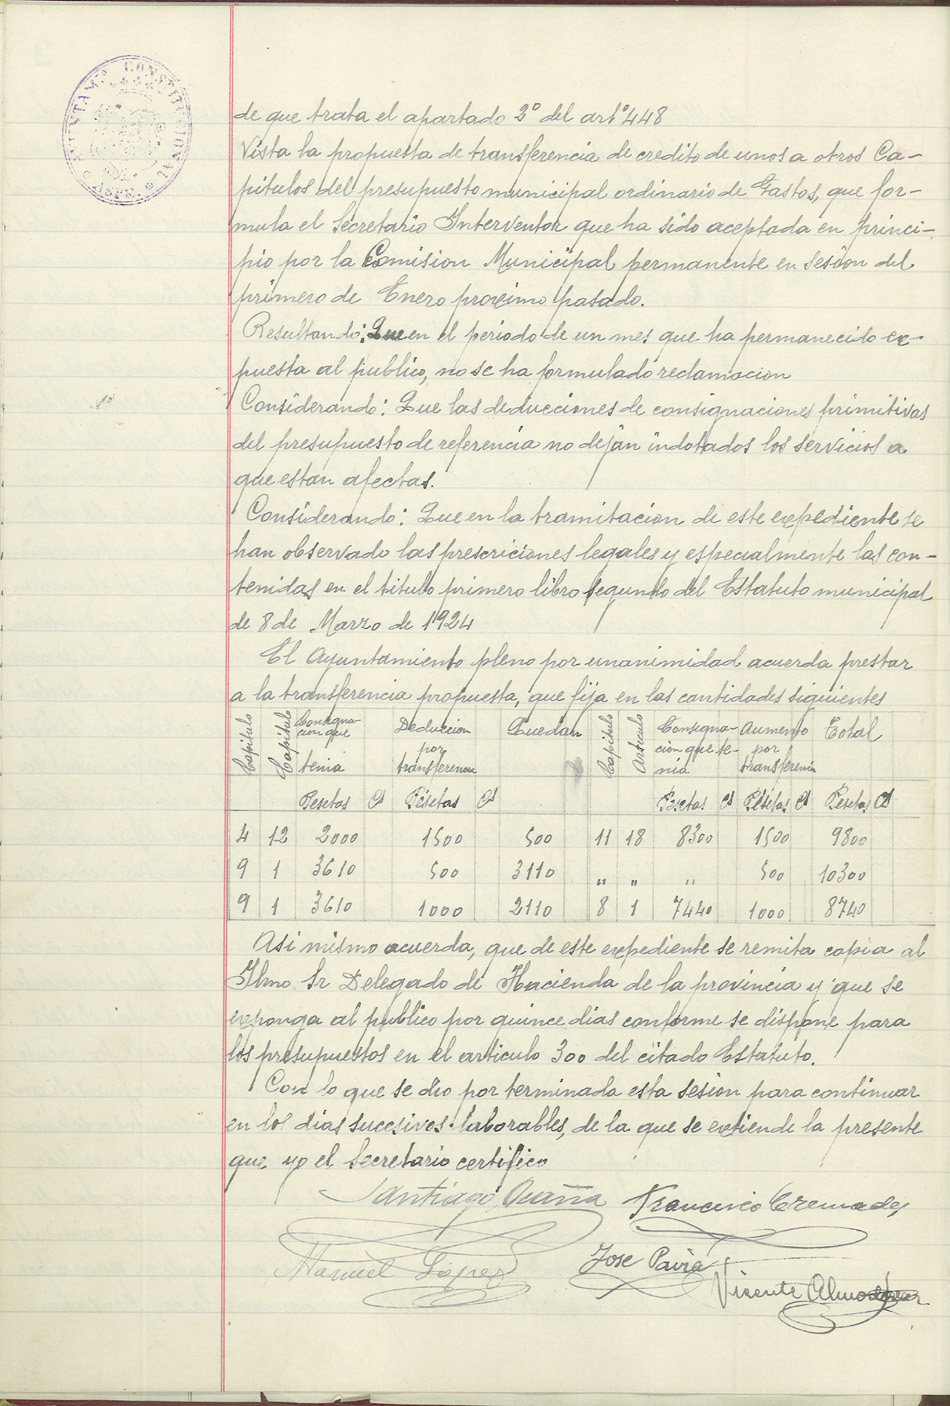 AYUNTAM.º CONSTITUCIONAL
ASPE
de que trata el apartado 3º del artº 448
Vista la propuesta de transferencia de credito de unos a otros Ca-
pitulos del presupuesto municipal ordinario de Gastos, que for-
mula el Secretario Interventor que ha sido aceptada en princi-
pio por la Comision Municipal permanente en sesion del
primero de Enero proximo pasado.
Resultando: Que en el periodo de un mes que ha permanecido ex-
puesta al publico, no se ha formulado reclamacion
Considerando: Que las deducciones de consignaciones primitivas
del presupuesto de referencia no dejan indotados los servicios a
que estan afectas.
Considerando: Que en la tramitacion de este expediente se
han observado las prescriciones legales y especialmente las con-
tenidas en el titulo primero libro segundo del Estatuto municipal
de 8 de Marzo de 1924
El Ayuntamiento pleno por unanimidad acuerda prestar
a la transferencia propuesta, que fija en las cantidades siguientes
Capitulo Capitulo Consigna-cion que tenia Deduccion por transferencia Quedan Capitulo Articulo Consigna-cion que te-nia Aumento por transferencia Total
Pesetas Cs Pesetas Cs Pesetas Cs Pesetas Cs Pesetas Cs
4 12 2000 1500 500 11 18 8300 1500 9800
9 1 3610 500 3110 " " " 500 10300
9 1 3610 1000 2110 8 1 7440 1000 8740
Asi mismo acuerda, que de este expediente se remita copia al
Ilmo Sr Delegado de Hacienda de la provincia y que se
exponga al publico por quince dias conforme se dispone para
los presupuestos en el articulo 300 del citado Estatuto.
Con lo que se dio por terminada esta sesion para continuar
en los dias sucesivos laborables, de la que se extiende la presente
que yo el Secretario certifico
Santiago Francisco Cremades
Manuel López Jose Pavia
Vicente